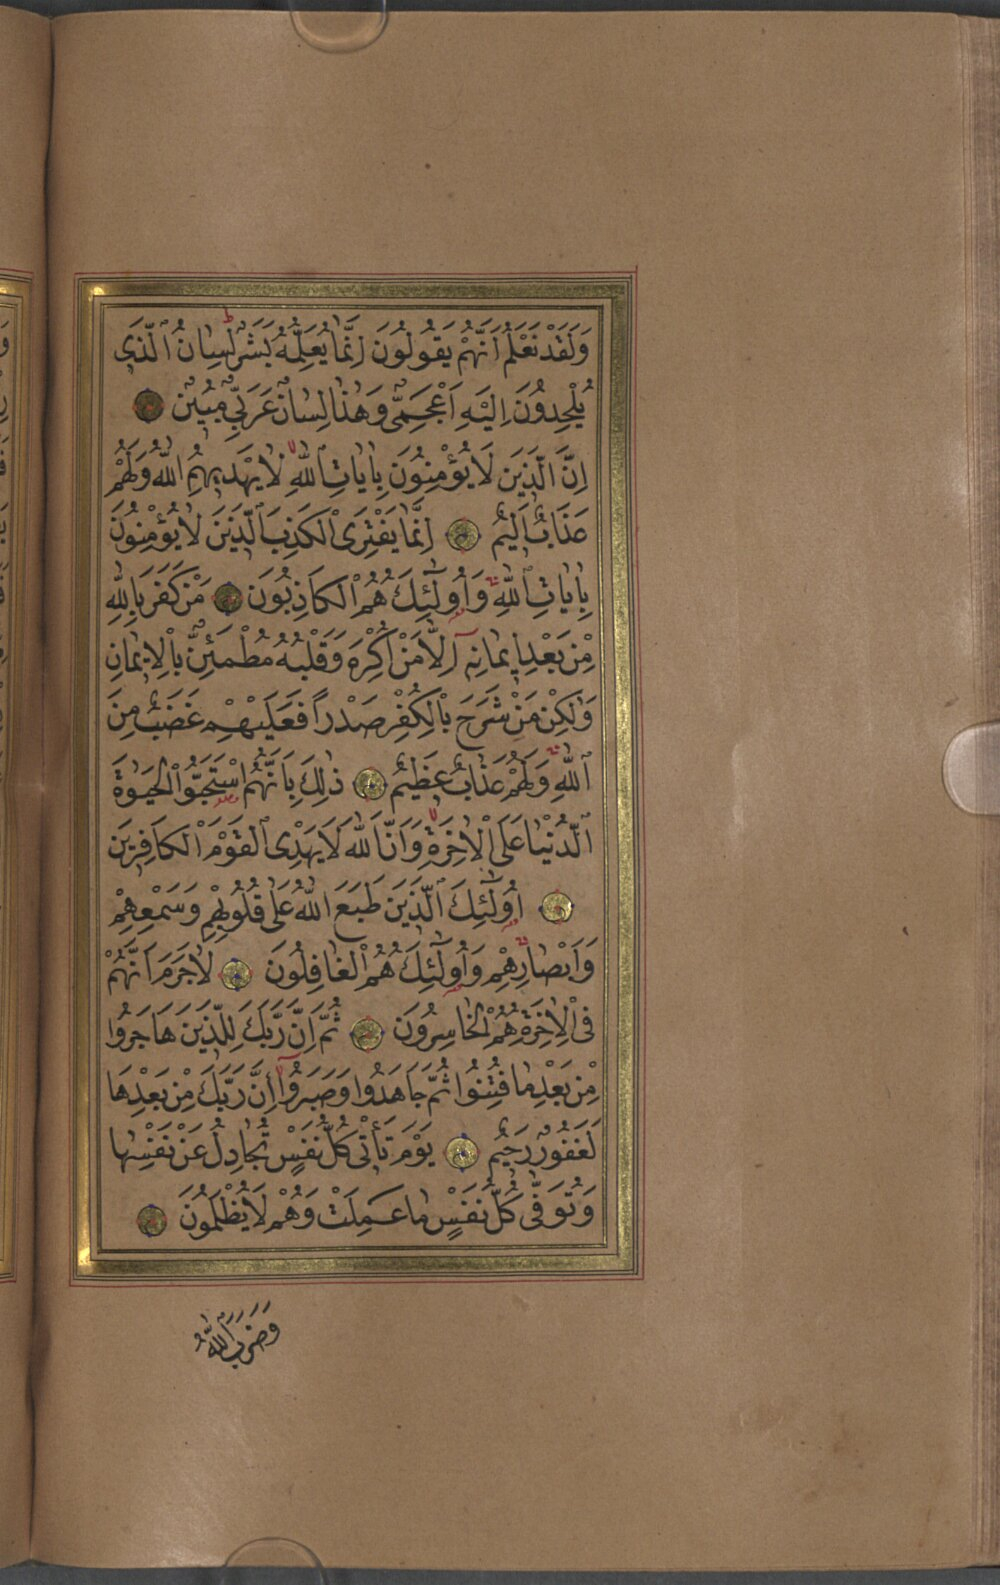 وَلَقَدْ نَعْلَمُ اَنَّهُمْ يَقُولُونَ اِنَّمَا يُعَلِّمُهُ بَشَرٌ لِسَانُ الَّذِى
يُلْحِدُونَ اِلَيْهِ اَعْجَمِىٌّ وَهٰذَا لِسَانٌ عَرَبِىٌّ مُبِينٌ
اِنَّ الَّذِينَ لَا يُؤْمِنُونَ بِاٰيَاتِ اللّٰهِ لَا يَهْدِيهِمُ اللّٰهُ وَلَهُمْ
عَذَابٌ اَلِيمٌ اِنَّمَا يَفْتَرِى الْكَذِبَ الَّذِينَ لَا يُؤْمِنُونَ
بِاٰيَاتِ اللّٰهِ وَاُولٰٓئِكَ هُمُ الْكَاذِبُونَ مَنْ كَفَرَ بِاللّٰهِ
مِنْ بَعْدِ اِيمَانِهٖٓ اِلَّا مَنْ اُكْرِهَ وَقَلْبُهُ مُطْمَئِنٌّ بِالْاِيمَانِ
وَلٰكِنْ مَنْ شَرَحَ بِالْكُفْرِ صَدْرًا فَعَلَيْهِمْ غَضَبٌ مِنَ
اللّٰهِ وَلَهُمْ عَذَابٌ عَظِيمٌ ذٰلِكَ بِاَنَّهُمُ اسْتَحَبُّوا الْحَيٰوةَ
الدُّنْيَا عَلَى الْاٰخِرَةِ وَاَنَّ اللّٰهَ لَا يَهْدِى الْقَوْمَ الْكَافِرِينَ
اُولٰٓئِكَ الَّذِينَ طَبَعَ اللّٰهُ عَلٰى قُلُوبِهِمْ وَسَمْعِهِمْ
وَاَبْصَارِهِمْ وَاُولٰٓئِكَ هُمُ الْغَافِلُونَ لَا جَرَمَ اَنَّهُمْ
فِى الْاٰخِرَةِ هُمُ الْخَاسِرُونَ ثُمَّ اِنَّ رَبَّكَ لِلَّذِينَ هَاجَرُوا
مِنْ بَعْدِ مَا فُتِنُوا ثُمَّ جَاهَدُوا وَصَبَرُوٓا اِنَّ رَبَّكَ مِنْ بَعْدِهَا
لَغَفُورٌ رَحِيمٌ يَوْمَ تَأْتِى كُلُّ نَفْسٍ تُجَادِلُ عَنْ نَفْسِهَا
وَتُوَفّٰى كُلُّ نَفْسٍ مَا عَمِلَتْ وَهُمْ لَا يُظْلَمُونَ
وَضَرَبَ اللّٰهُ